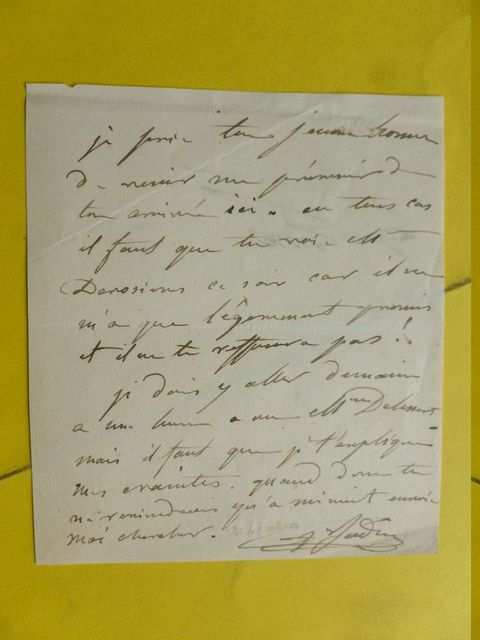 je prie ton jeune homme
de venir me prévenir de
ton arrivée ici. en tous cas
il faut que tu voie Mr
Derosiers ce soir car il ne
m'a que légerement promis
et il ne te reffusera pas!
je dois y aller demain
a une heure avec Mme Delessert
mais il faut que je t'explique
mes craintes. quand donc tu
ne reviendrais qu'a minuit envoie
moi chercher.